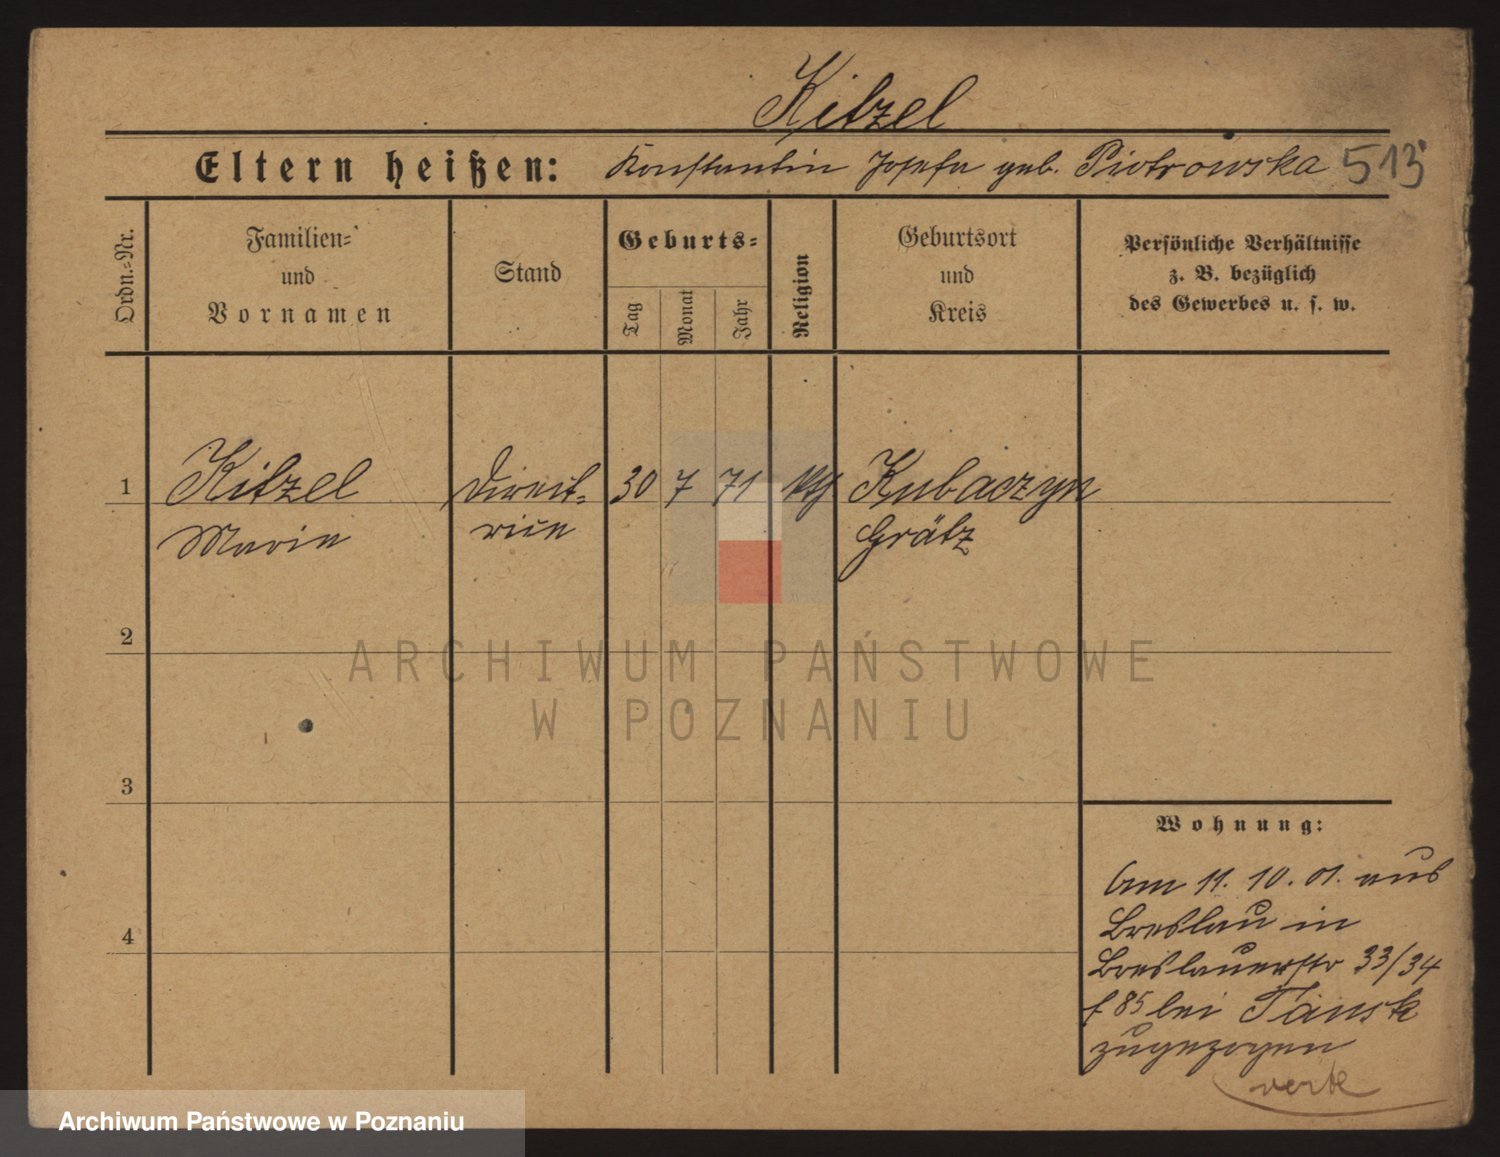 Kitzel
Eltern heißen: Konstantin Josefa geb. Piotrowska 513
Ordn.=Nr.
Familien=
und
Vornamen
Stand
Geburts=
Tag
Monat
Jahr
Religion
Geburtsort
und
Kreis
Persönliche Verhältnisse
z. B. bezüglich
des Gewerbes u. s. w.
1 Kitzel Direct= 30 7 71 kth Kubaczyn
Marie rice Grätz
2
3
4
Wohnung:
Am 11. 10. 01. aus
Breslau in
Breslauerstr 33/34
f 85 bei
zugezogen
ARCHIWUM PAŃSTWOWE
W POZNANIU
Archiwum Państwowe w Poznaniu